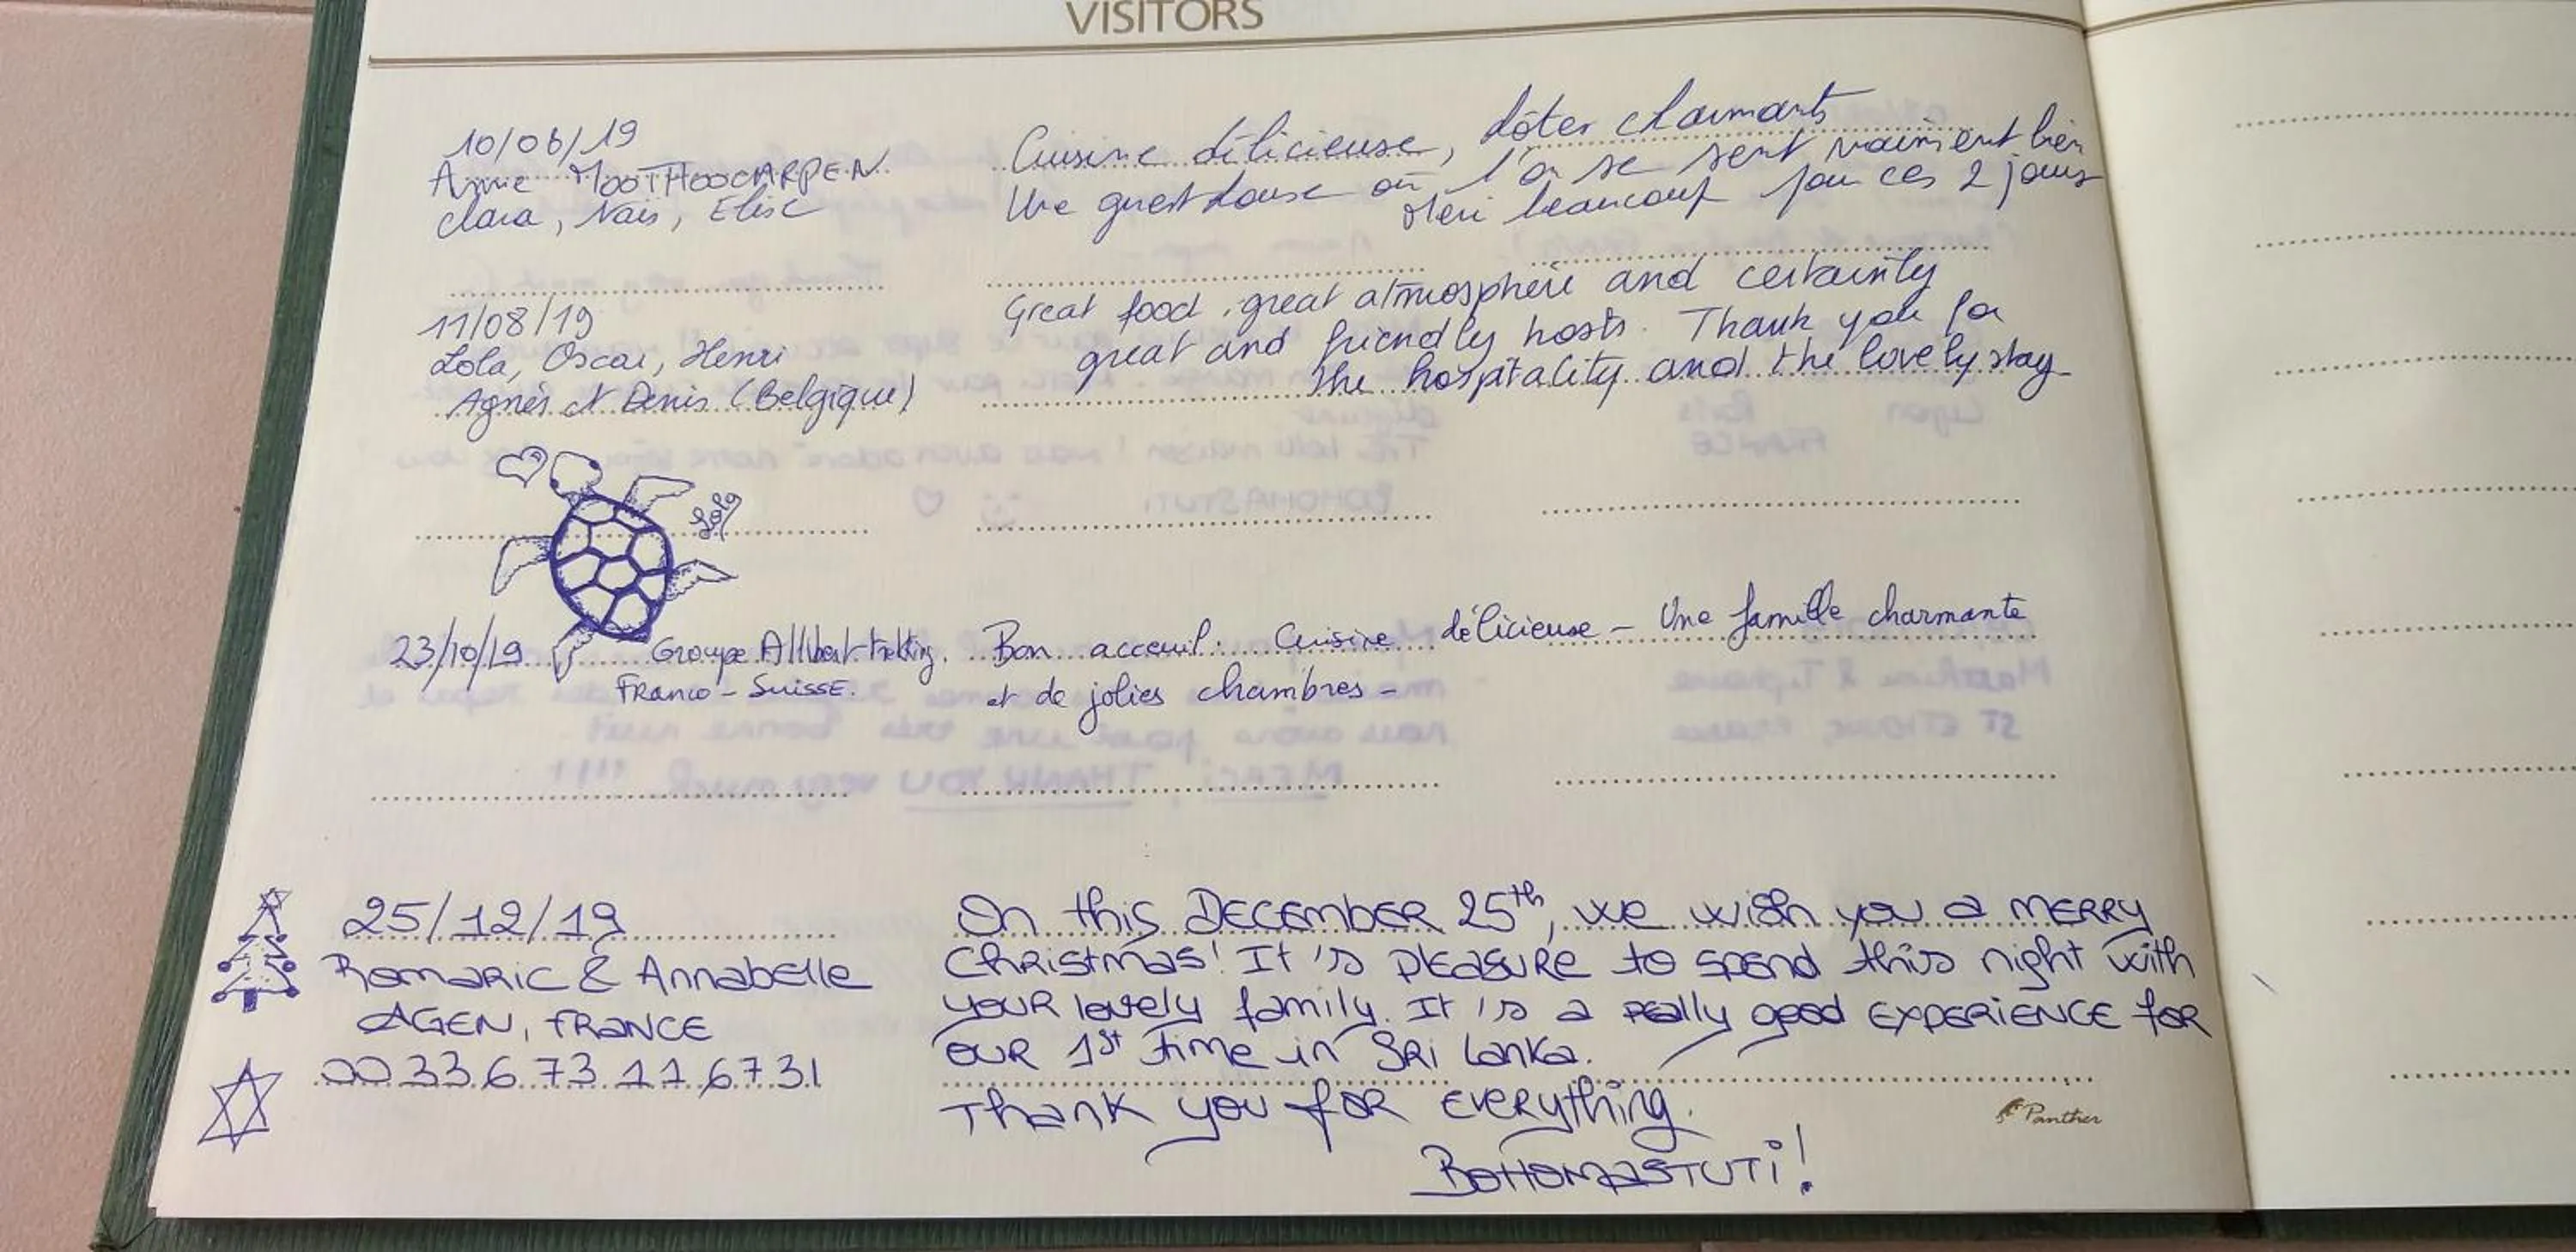 VISITORS
10/08/19
Anne MOOTHOOCARPEN
Clara, Naïs, Elise
Cuisine délicieuse, hôtes charmants
Une guest house où l'on se sent vraiment bien
Merci beaucoup pour ces 2 jours
11/08/19
Lola, Oscar, Henri
Agnès et Denis (Belgique)
Great food, great atmosphere and certainly
great and friendly hosts. Thank you for
the hospitality and the lovely stay
Lola
23/10/19 Groupe Allibert-trekking.
Franco - Suisse.
Bon acceuil. Cuisine délicieuse - Une famille charmante
et de jolies chambres -
25/12/19
Romaric & Annabelle
AGEN, FRANCE
00 33 6 73 11 67 31
On this DECEMBER 25th, we wish you a MERRY
Christmas! It's pleasure to spend this night with
your lovely family. It's a really good EXPERIENCE for
our 1st time in Sri Lanka.
Thank you for everything.
BOHOMASTUTI!
Panther